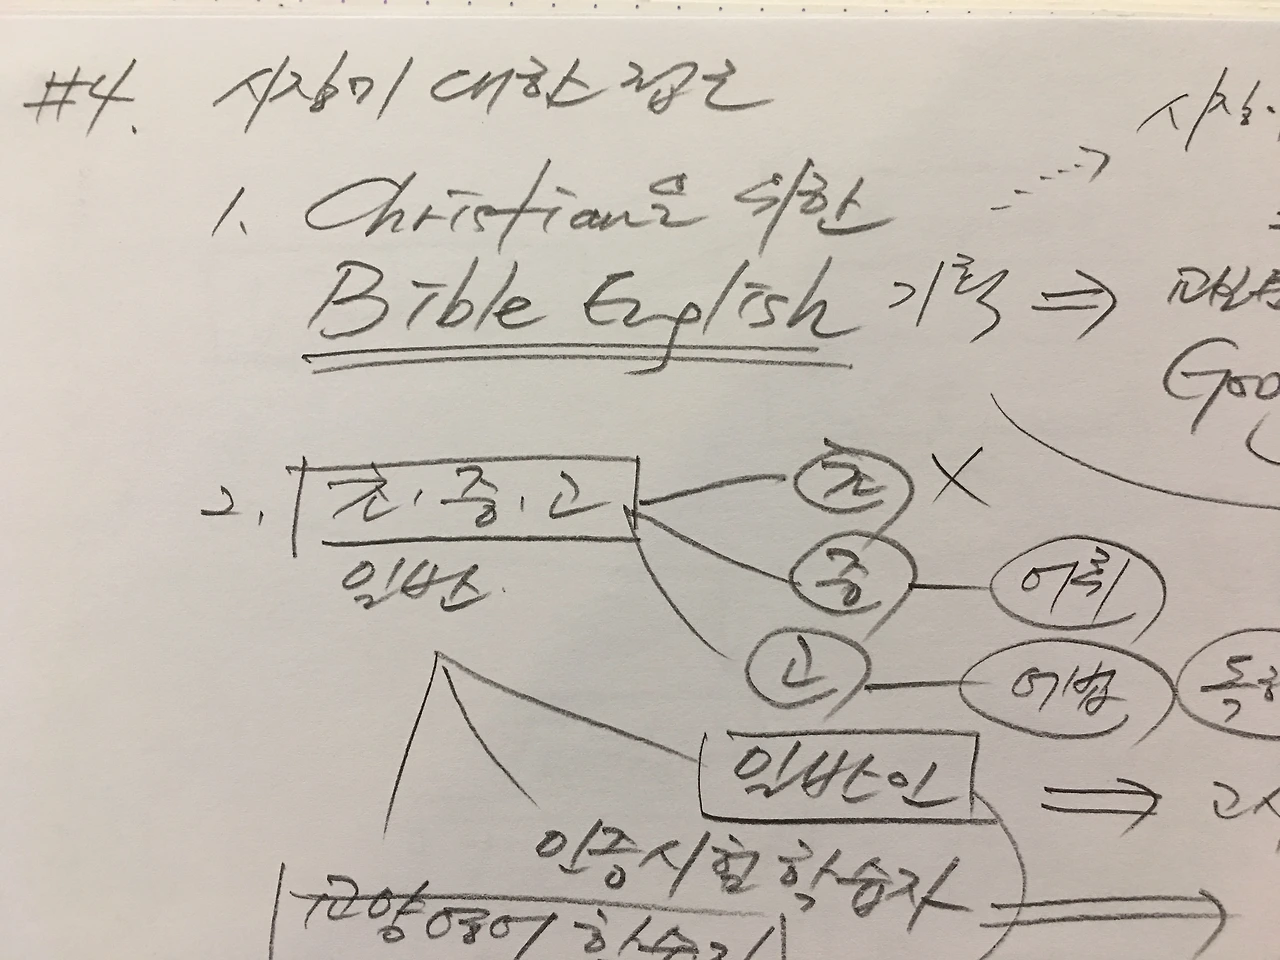 #4. 시장에 대한 접근
1. Christian을 위한
Bible English 기획 ⇒
2. 초, 중, 고
일반
초 X
중 어휘
고 어법
일반인 ⇒
인증시험 학습자
교양영어 학습자